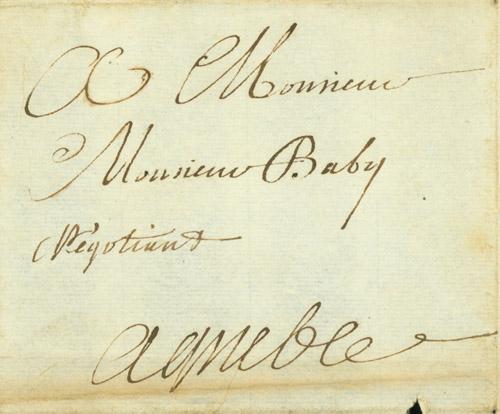 A Monsieur
Monsieur Baby
Négotiant
aquebec